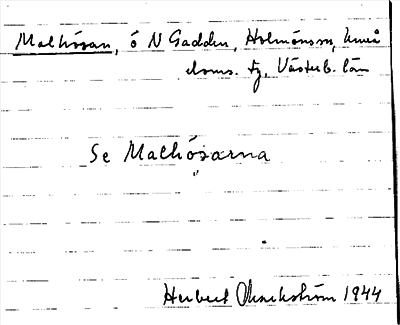 Malhösan, ö N Gadden, Holmönsn, Umeå
doms. fg, Västerb. län
Se Malhösarna
Herbert Markström 1944